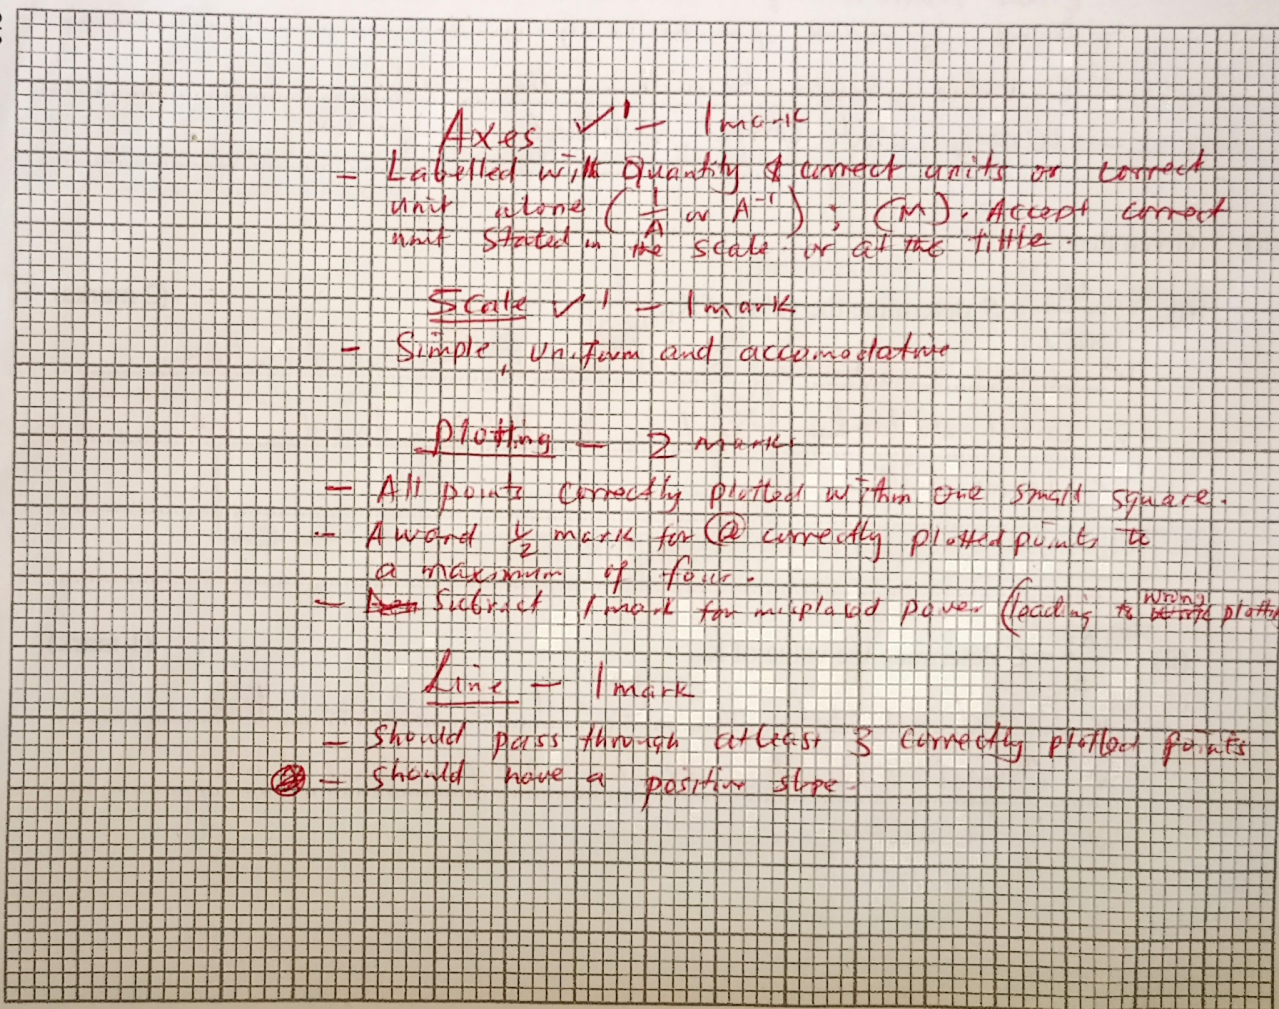 Axes ✓1 – 1 mark
– Labelled with Quantity & correct units or correct
unit alone (1/A or A⁻¹) ; (M). Accept correct
unit stated in the scale or at the tittle.
Scale ✓1 – 1 mark
– Simple, uniform and accomodative
Plotting – 2 marks
– All points correctly plotted within one small square.
– Award ½ mark for @ correctly plotted points to
a maximum of four.
– Subtract 1 mark for misplaced power (leading to wrong plotting
Line – 1 mark
– Should pass through atleast 3 correctly plotted points
– Should have a positive slope.